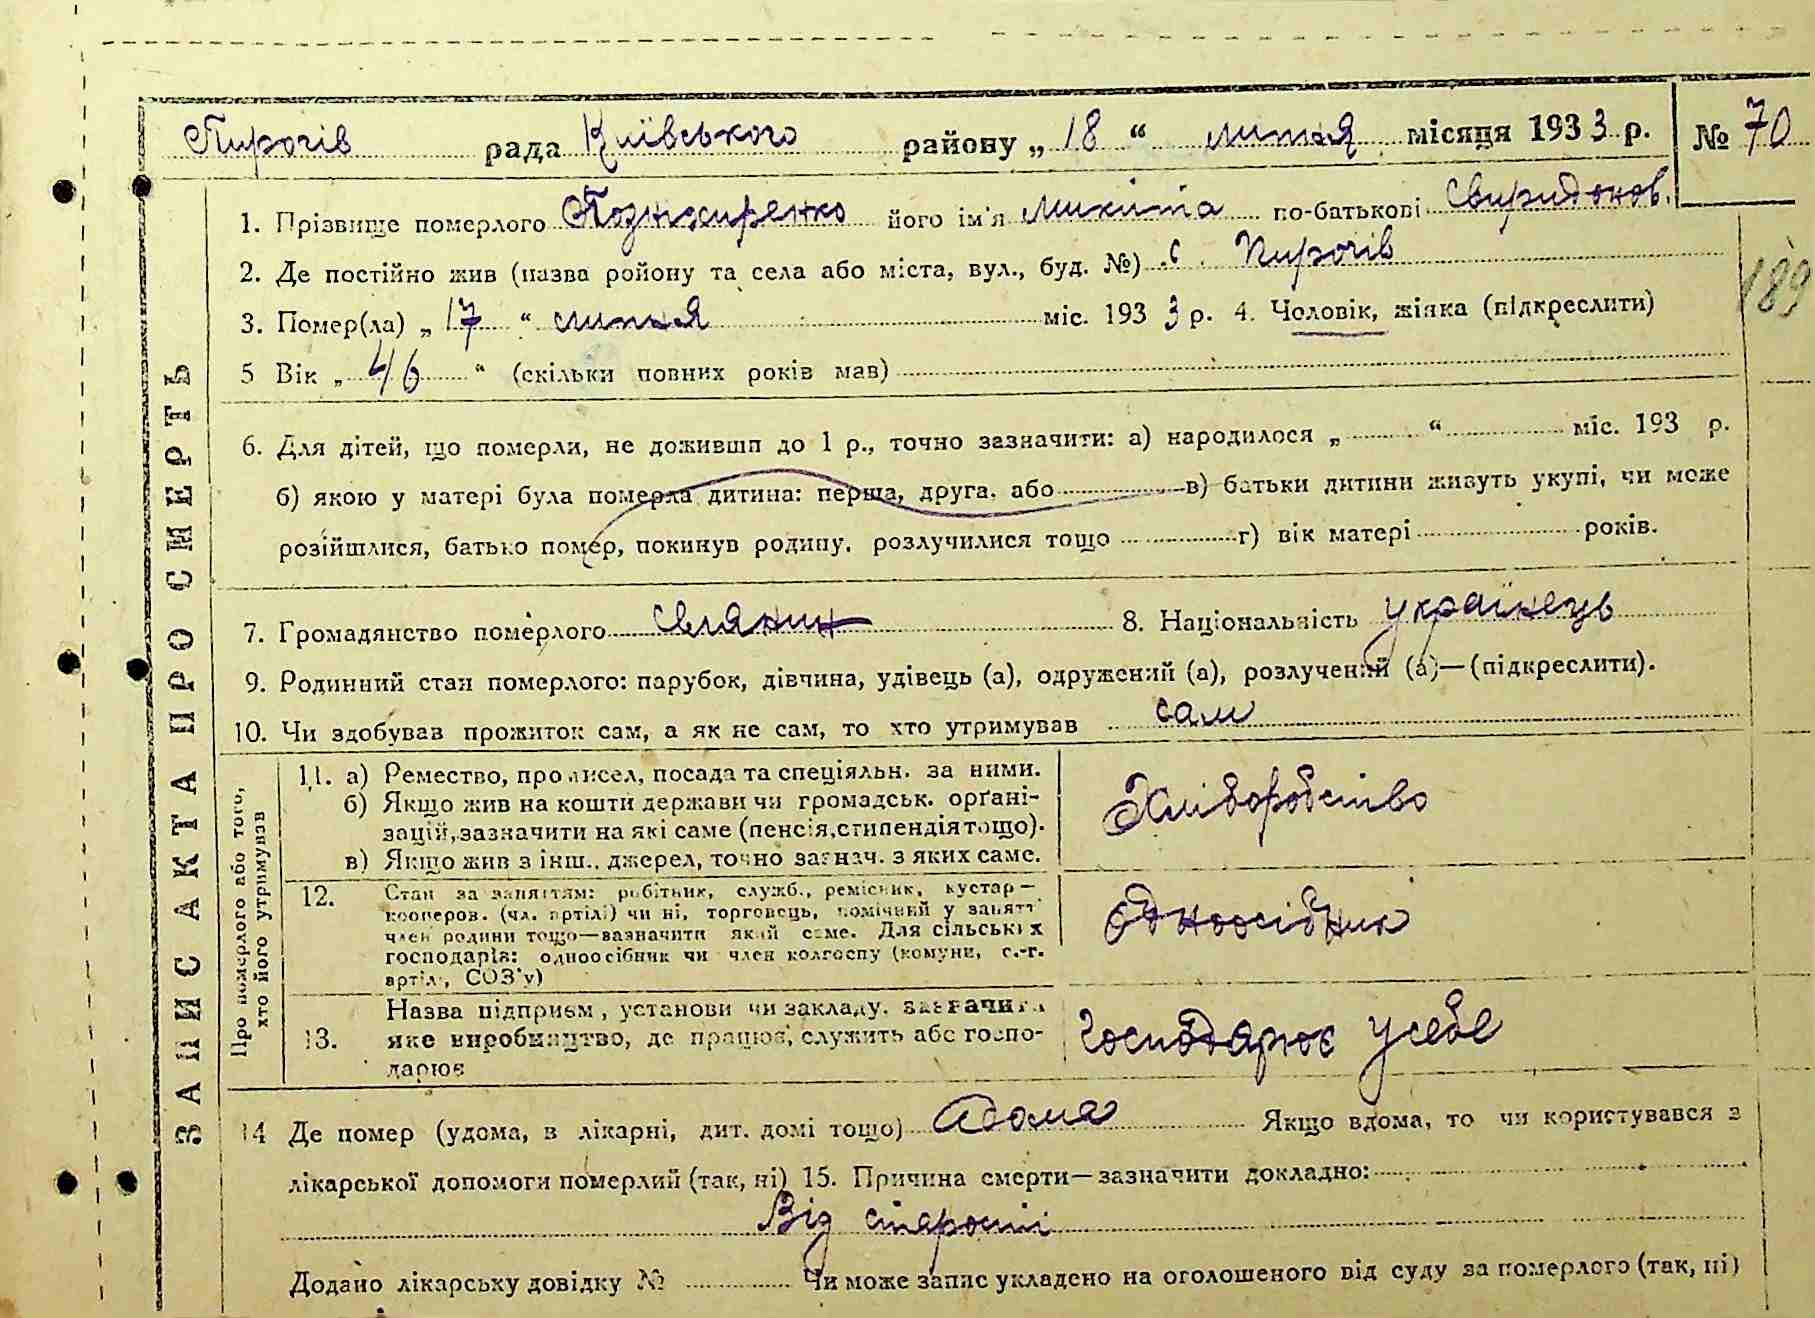 Пирогів рада Київського району „ 18 “ липня місяця 1933 р. № 70
1. Прізвище померлого Познжиренко його ім'я Микита по-батькові Свиридонов.
2. Де постійно жив (назва ройону та села або міста, вул., буд. №) с. Пирогів
189
3. Помер(ла) „ 17 “ липня міс. 1933 р. 4. Чоловік, жінка (підкреслити)
5 Вік „ 46 “ (скільки повних років мав)
6. Для дітей, що померли, не доживши до 1 р., точно зазначити: а) народилося „ “ міс. 193 р.
б) якою у матері була померла дитина: перша, друга. або в) батьки дитини живуть укупі, чи може
розійшлися, батько помер, покинув родину. розлучилися тощо г) вік матері років.
7. Громадянство померлого Селянин 8. Національність українець
9. Родинний стан померлого: парубок, дівчина, удівець (а), одружений (а), розлучений (а)—(підкреслити).
10. Чи здобував прожиток сам, а як не сам, то хто утримував сам
ЗАПИС АКТА ПРО СМЕРТЬ
Про померлого або того, хто його утримував
11. а) Ремество, промисел, посада та спеціяльн. за ними.
б) Якщо жив на кошти держави чи громадськ. орґані-
зацій, зазначити на які саме (пенсія, стипендія тощо).
в) Якщо жив з інш.. джерел, точно зазнач. з яких саме.
Хліборобство
12. Стан за заняттям: робітник, служб., ремісник, кустар—
кооперов. (чл. артілі) чи ні, торговець, помічний у занятт
член родини тощо—зазначити який саме. Для сільських
господарів: одноосібник чи член колгоспу (комуни, с.-г.
артілі, СОЗ'у)
Одноосібник
13. Назва підприєм, установи чи закладу. зазначити
яке виробництво, де працює, служить або госпо-
дарює
Господарює у себе
14 Де помер (удома, в лікарні, дит. домі тощо) вдома Якщо вдома, то чи користувався з
лікарської допомоги померлий (так, ні) 15. Причина смерти—зазначити докладно:
Від старости
Додано лікарську довідку № Чи може запис укладено на оголошеного від суду за померлого (так, ні)